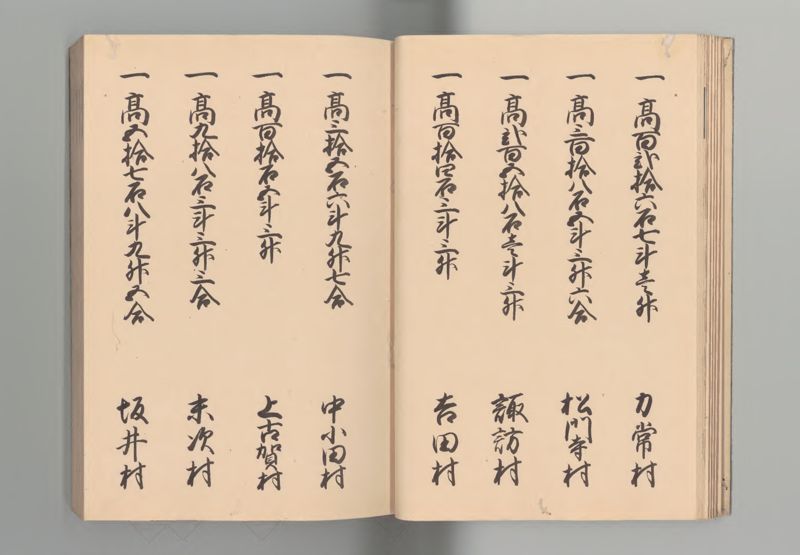 一 高百弐拾六石七斗壱升 力常村
一 高三百拾八石五斗三升六合 松門寺村
一 高弐百五拾八石壱斗三升 諏訪村
一 高百拾四石三斗三升 吉田村
一 高三拾五石六斗九升七合 中小田村
一 高百拾石五斗三升 上古賀村
一 高九拾八石三斗三升三合 末次村
一 高五拾七石八斗九升五合 坂井村